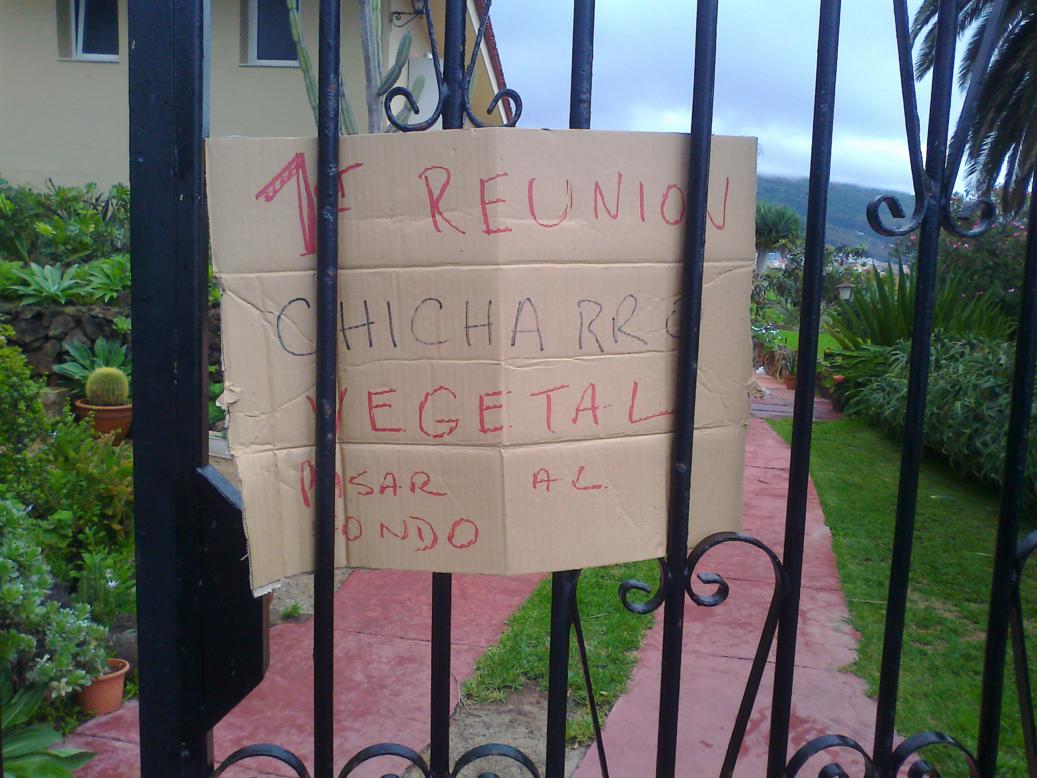 1ª REUNION
CHICHARRO
VEGETAL
PASAR AL
FONDO